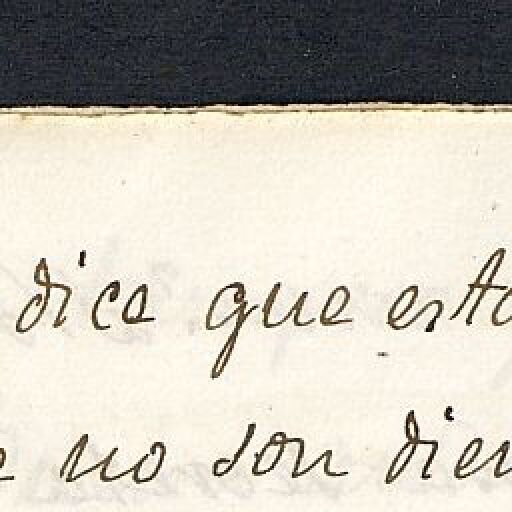 dice que esta
no son dien